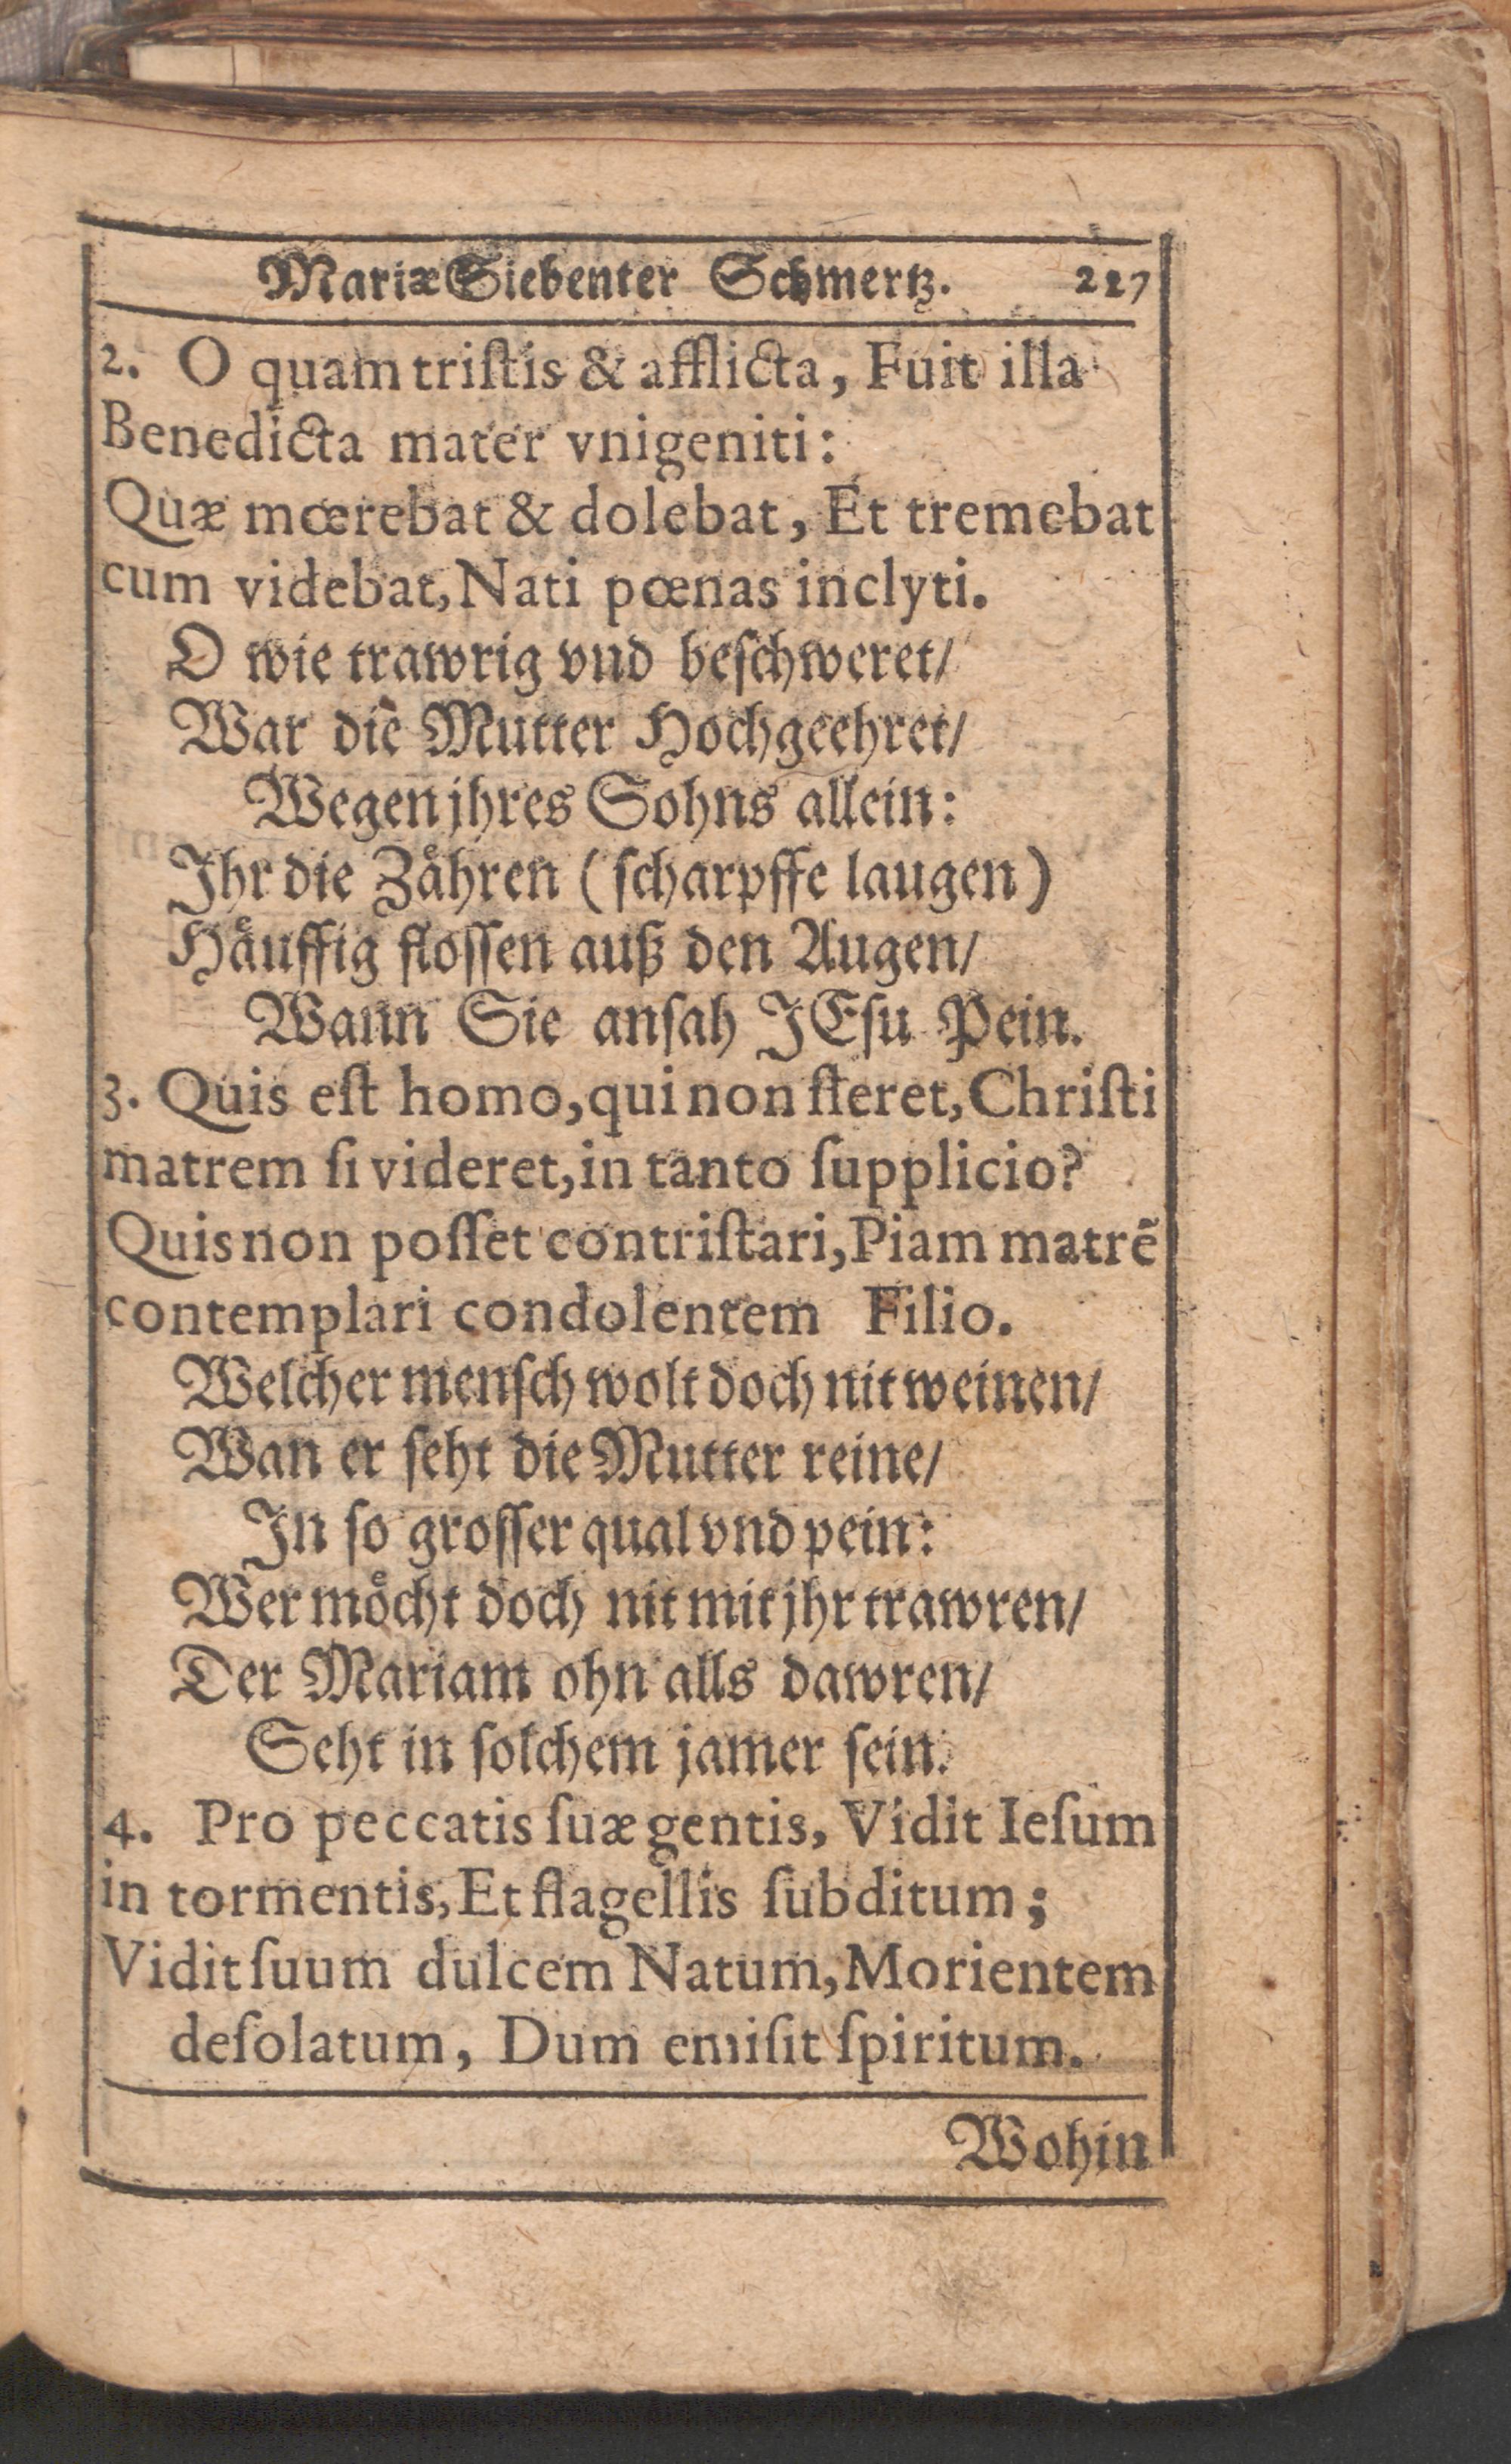 Mariæ Siebenter Schmertz. 217
2. O quam triſtis & afflicta, Fuit illa
Benedicta mater vnigeniti:
Quæ mœrebat & dolebat, Et tremebat
cum videbat, Nati pœnas inclyti.
O wie trawrig vnd beſchweret/
War die Mutter Hochgeehret/
Wegen jhres Sohns allein:
Ihr die Zaͤhren (ſcharpffe laugen)
Haͤuffig floſſen auß den Augen/
Wann Sie anſah JEſu Pein.
3. Quis eſt homo, qui non fleret, Chriſti
matrem ſi videret, in tanto ſupplicio?
Quis non poſſet contriſtari, Piam matrẽ
contemplari condolentem Filio.
Welcher menſch wolt doch nit weinen/
Wan er ſeht die Mutter reine/
In ſo groſſer qual vnd pein:
Wer moͤcht doch nit mit jhr trawren/
Der Mariam ohn alls dawren/
Seht in ſolchem jamer ſein.
4. Pro peccatis ſuæ gentis, Vidit Ieſum
in tormentis, Et flagellis ſubditum;
Vidit ſuum dulcem Natum, Morientem
deſolatum, Dum emiſit ſpiritum.
Wohin